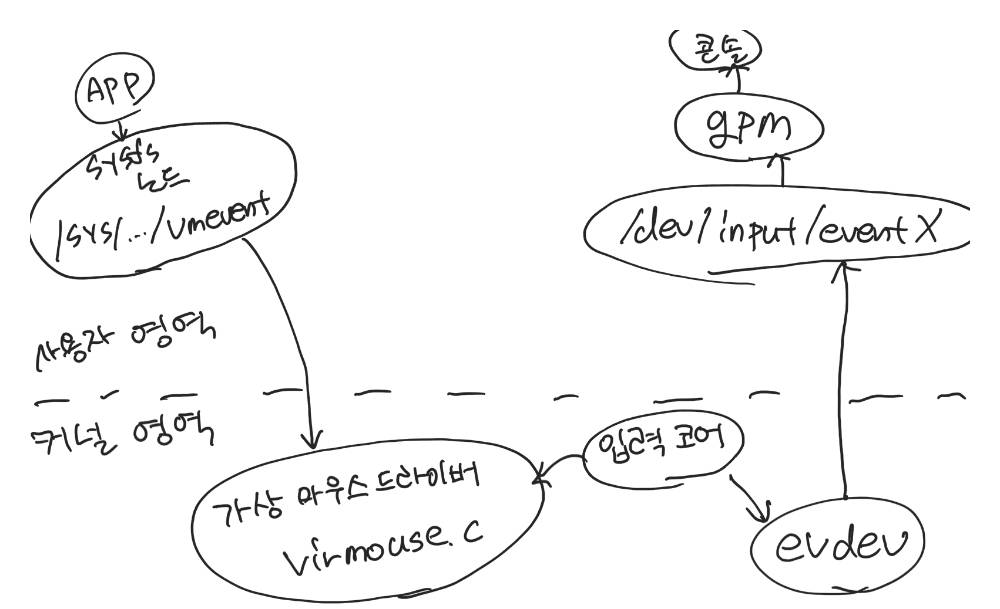 APP
sysfs
노드
/sys/.../vmevent
콘솔
gpm
/dev/input/eventX
사용자 영역
커널 영역
입력 코어
가상 마우스 드라이버
virmouse.c
evdev